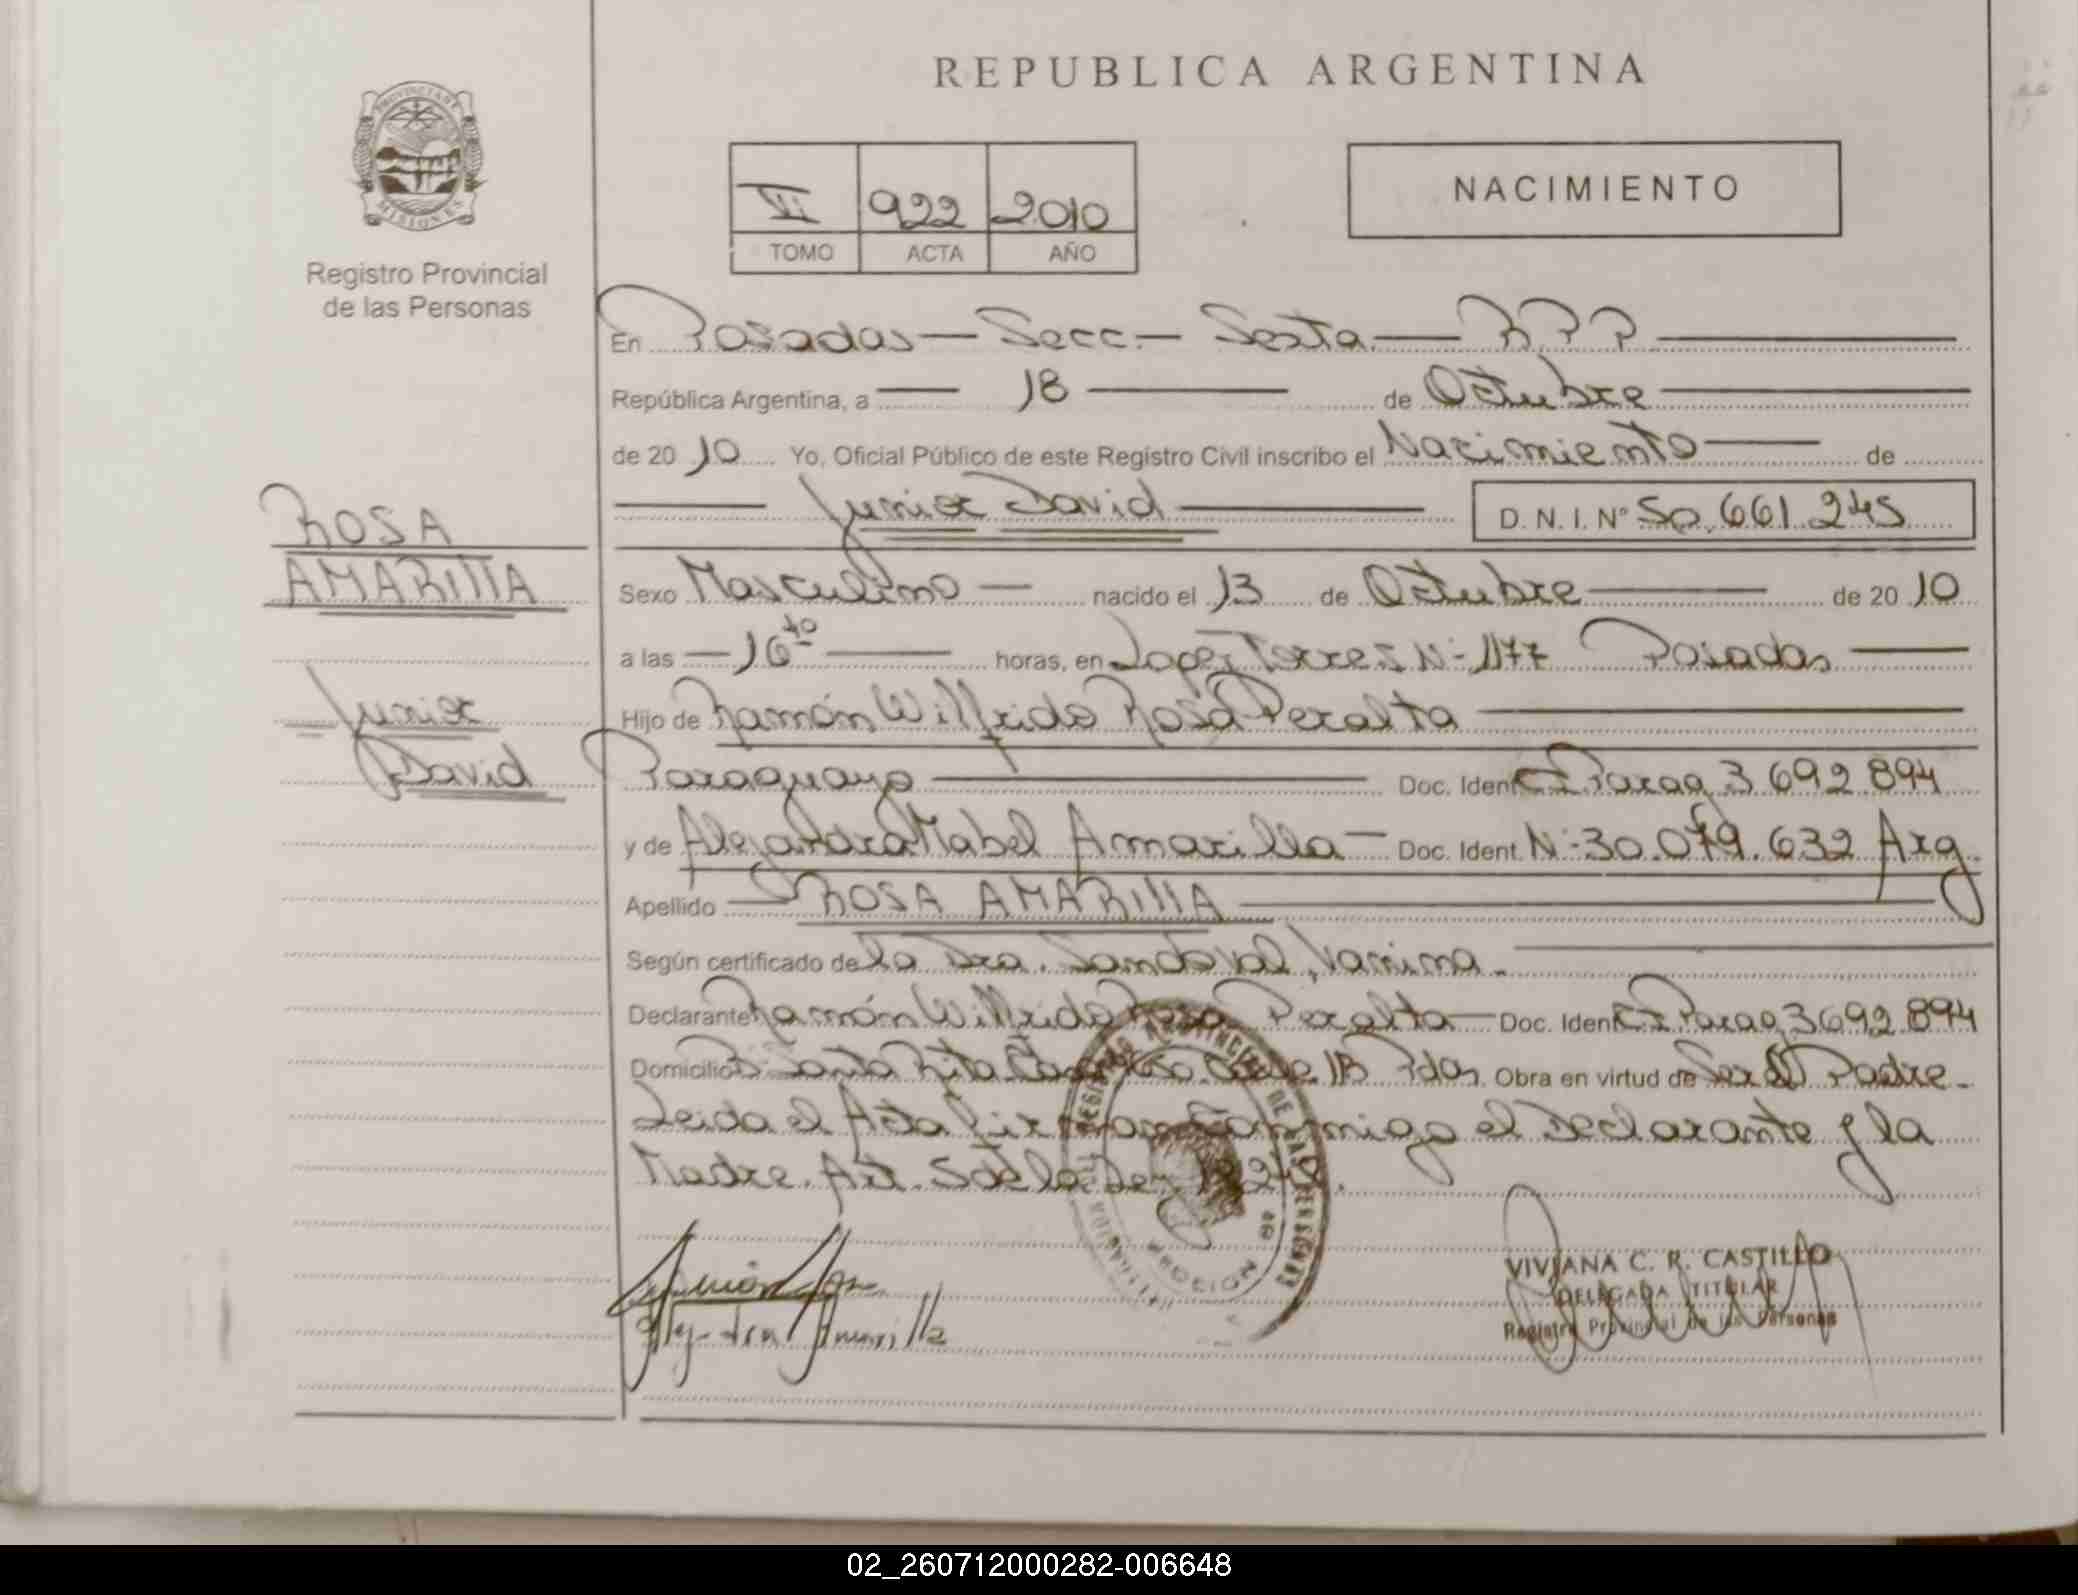 REPUBLICA ARGENTINA
PROVINCIA DE
MISIONES
Registro Provincial
de las Personas
VI 922 2010
TOMO ACTA AÑO
NACIMIENTO
En Posadas - Secc. - Sexta - R.P.P
República Argentina, a 18 de Octubre
de 2010 Yo, Oficial Público de este Registro Civil inscribo el Nacimiento de
Junior David D. N. I. Nº 50.661.245
ROSA
AMARILLA
Junior
David
Sexo Masculino nacido el 13 de Octubre de 2010
a las 16 horas, en Lopez Torres Nº 1177 Posadas
Hijo de Ramón Wilfrido Rosa Peralta
Paraguayo Doc. Ident. CI Parag 3692894
y de Alejandra Mabel Amarilla Doc. Ident. Nº 30.079.632 Arg.
Apellido ROSA AMARILLA
Según certificado de la Dra. Sandoval, Vanina.
Declarante Ramón Wilfrido Rosa Peralta Doc. Ident. CI Parag 3692894
Domicilio Bº Santa Rita Casa 18 Pdas. Obra en virtud de Ser el Padre.
Leida el Acta firman Conmigo el Declarante y la
Madre. Art. 5 de la
VIVIANA C. R. CASTILLO
DELEGADA TITULAR
Registro Provincial de las Personas
Alejandra Amarilla
02_260712000282-006648